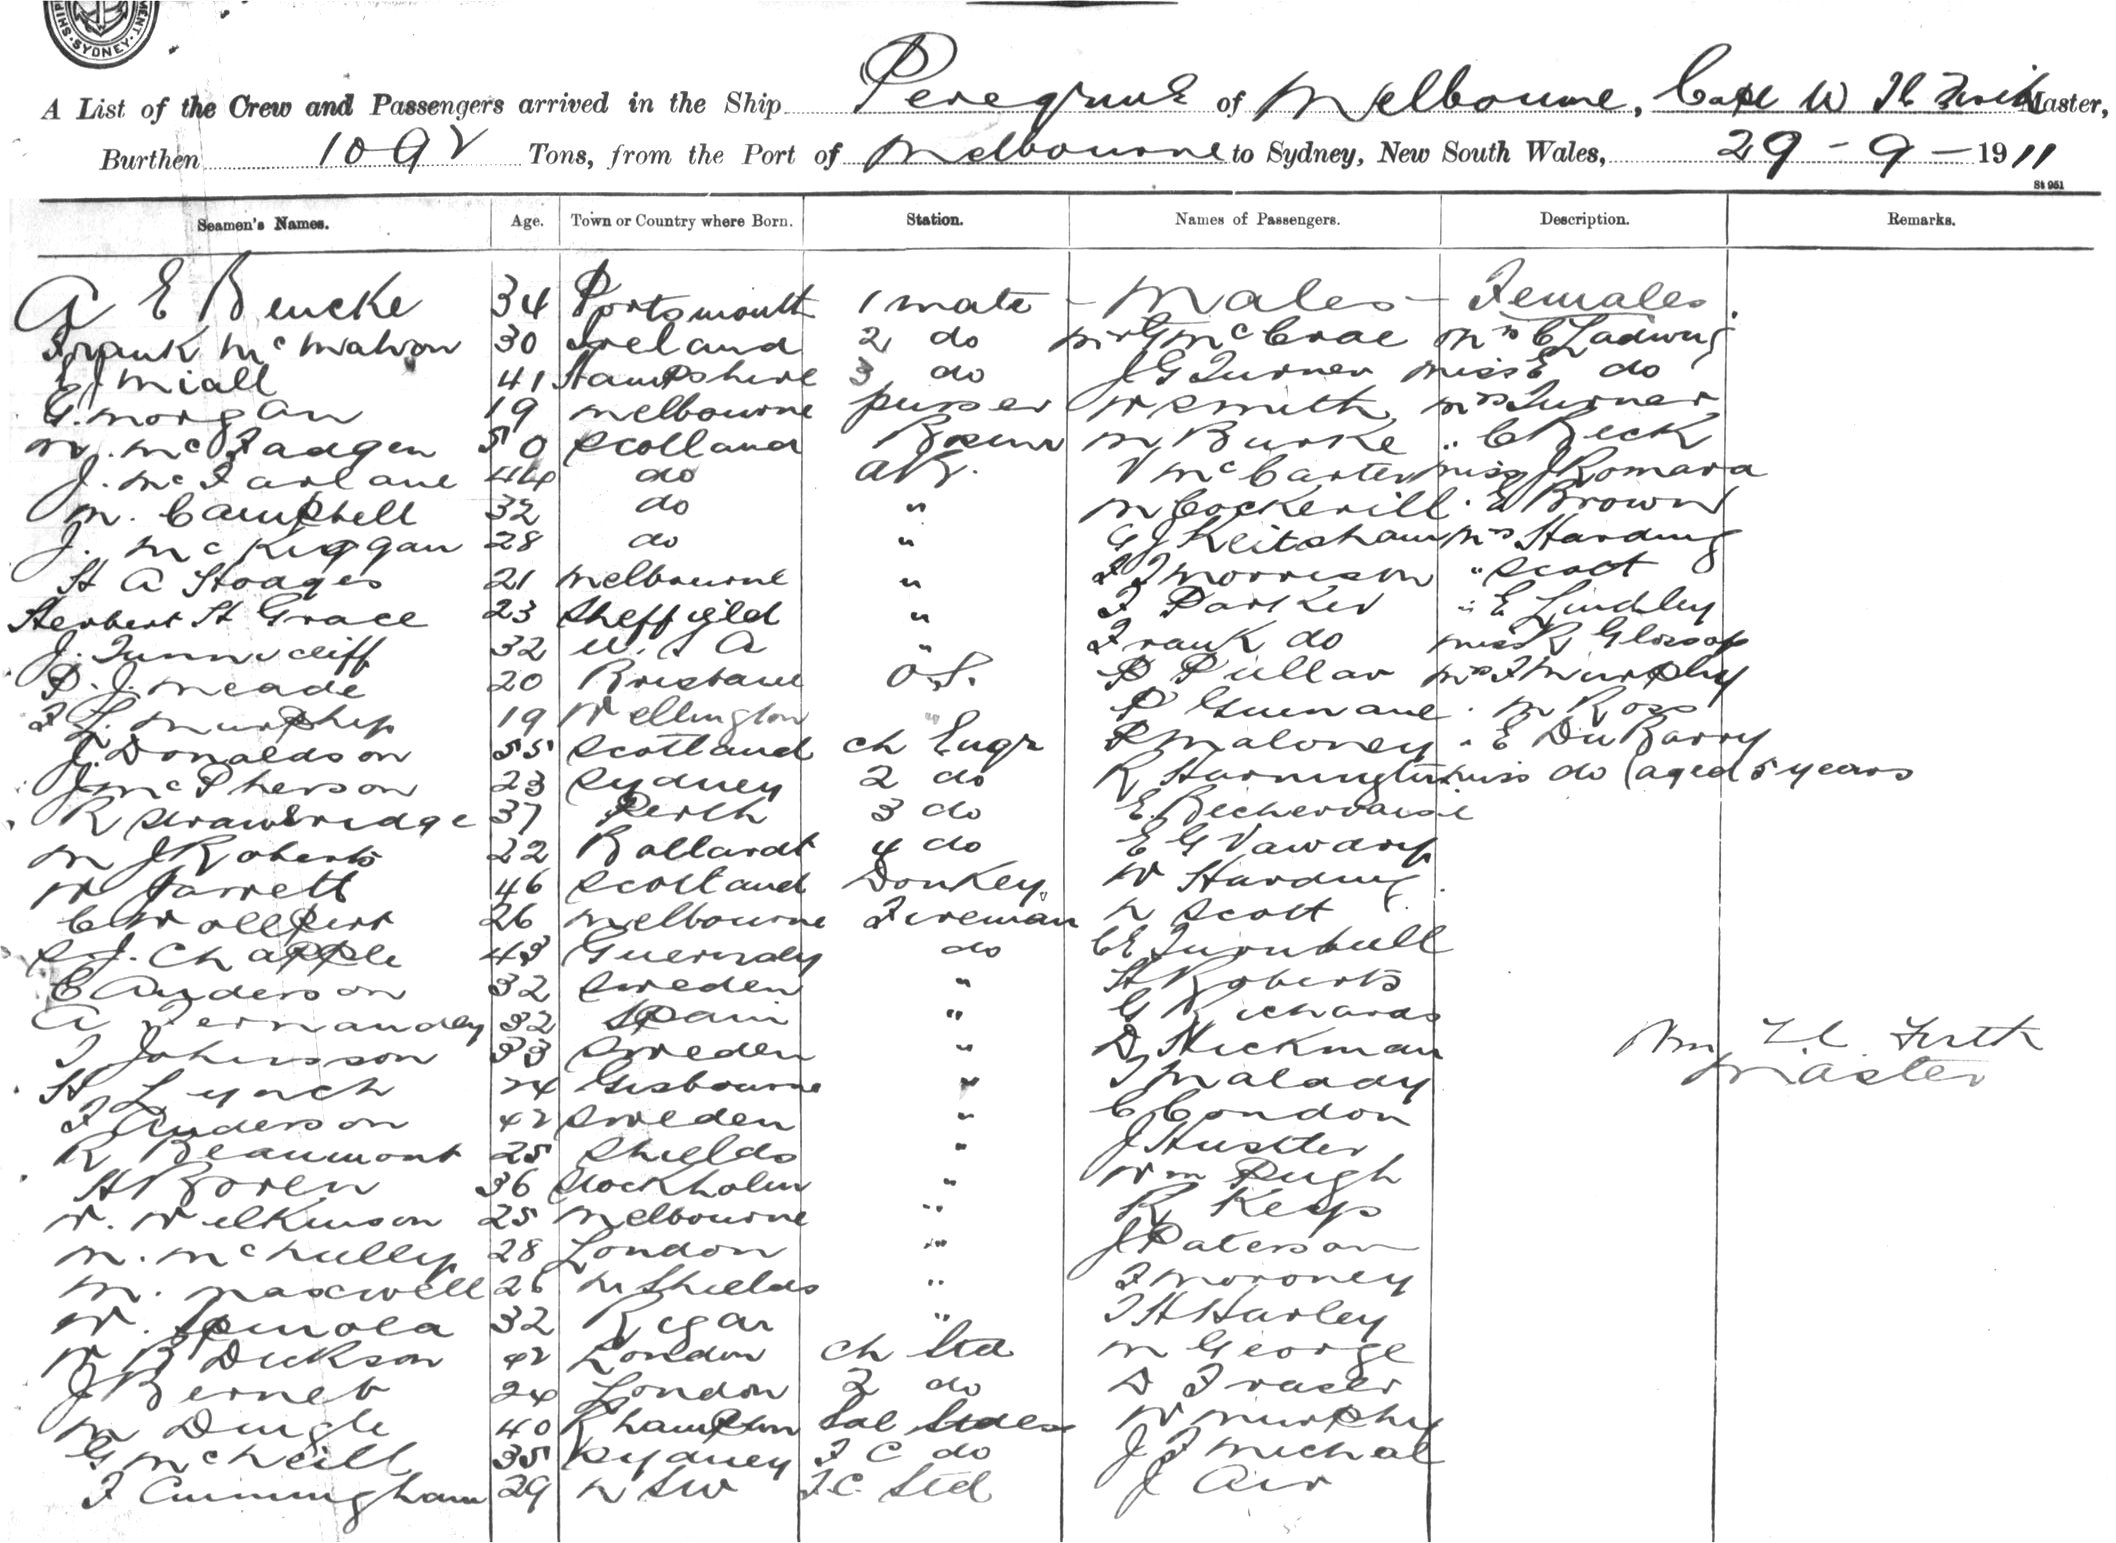 SYDNEY
A List of the Crew and Passengers arrived in the Ship Peregrine of Melbourne, Capt W Master,
Burthen 1092 Tons, from the Port of Melbourne to Sydney, New South Wales, 29-9-1911
St 951
Seamen's Names. Age. Town or Country where Born. Station. Names of Passengers. Description. Remarks.
A E Bencke 34 Portsmouth 1 mate - Males - Females
Frank McMahon 30 Ireland 2 do Mr G McCrae Mrs C Ladwig
E J Miall 41 Hampshire 3 do J G Turner Miss E do
G. Morgan 19 Melbourne purser W Smith Mrs Turner
M. McFadgen 50 Scotland Bosun M Burke " C Beck
J. McFarlane 44 do AB. V McCarter Miss J Romara
M. Campbell 32 do " M Cockerill " E Brown
J. McKiggan 28 do " G J Keitsham Mrs Harding
H A Hodges 21 Melbourne " F J Morrison " Scott
Herbert H Grace 23 Sheffield " F Parker " E Lindley
J. Tunnicliff 32 U.S A " Frank do Miss R Glossop
P. J. Meade 20 Brisbane O.S. P Pullar Mrs F Murphy
F L. Murphy 19 Wellington " P Guinane " M Ross
J. Donaldson 55 Scotland ch Engr P Maloney " E Du Barry
J McPherson 23 Sydney 2 do R Harrington Miss do (aged 5 years
R Strawbridge 37 Perth 3 do E. Bechervaise
M J Roberts 22 Ballardt 4 do E G Vawdry
W Jarrett 46 Scotland Donkey. W Harding
C Wollpert 26 Melbourne Fireman N Scott
S. J. Chapple 43 Guernsly do C E Turnbull
C Anderson 32 Sweden " H Roberts
A Fernandez 32 Spain " G Richards
J Johansson 33 Sweden " D Hickman Wm Firth
H Lynch 24 Gisbourne " J Malady Master
F Anderson 42 Sweden " C Condon
R Beaumont 25 Shields " J Hustler
H Boren 36 Stockholm " Wm Pugh
W. Wilkinson 25 Melbourne " R Keys
M. McNully 28 London " J Paterson
M. Maxwell 26 N Shields " F Moroney
W. Spinola 32 Rigar " J H Harley
W B Dickson 42 London ch Std M George
J Bernet 24 London 2 do D Fraser
M Dingle 40 R hampton Sal Stdess W Murphy
G McNeill 35 Sydney F C do J F Michael
F Cunningham 29 N S W F.C. Std J Air